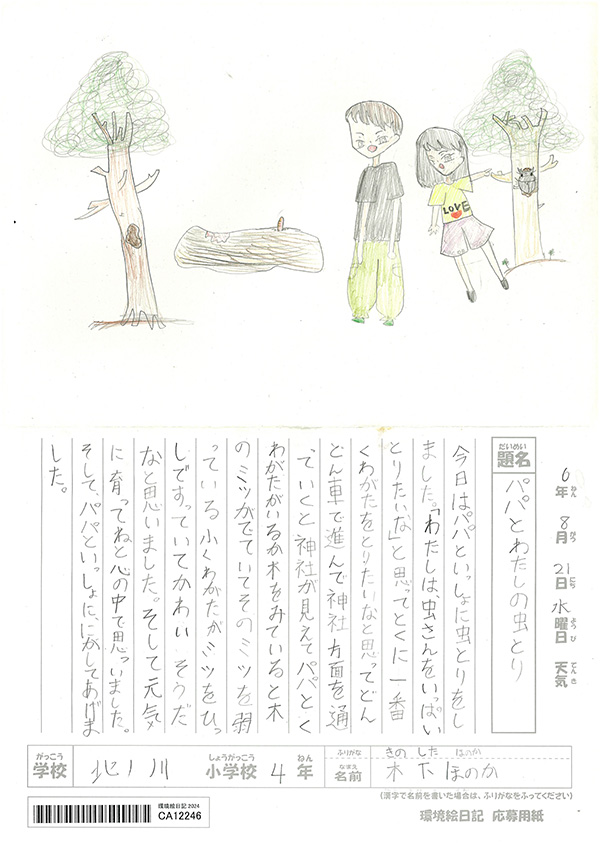 LOVE
6年 8月 21日 水曜日 天気
ねん がつ にち ようび てんき
だいめい
題名
パパとわたしの虫とり
今日はパパといっしょに虫とりをし
ました。「わたしは、虫さんをいっぱい
とりたいな」と思ってとくに一番
くわがたをとりたいなと思ってどん
どん車で進んで神社方面を通
っていくと神社が見えてパパとく
わがたがいるか木をみていると木
のミツがでていてそのミツを弱
っている小くわがたがミツをひっ
しですっていてかわいそうだ
なと思いました。そして元気
に育ってねと心の中で思っいました。
そして、パパといっしょに、にがしてあげま
した。
がっこう
学校
北ノ川
しょうがっこう
小学校
4年
ねん
ふりがな
きのした ほのか
なまえ
名前
木下ほのか
(漢字で名前を書いた場合は、ふりがなをふってください)
環境絵日記 2024
CA12246
環境絵日記 応募用紙